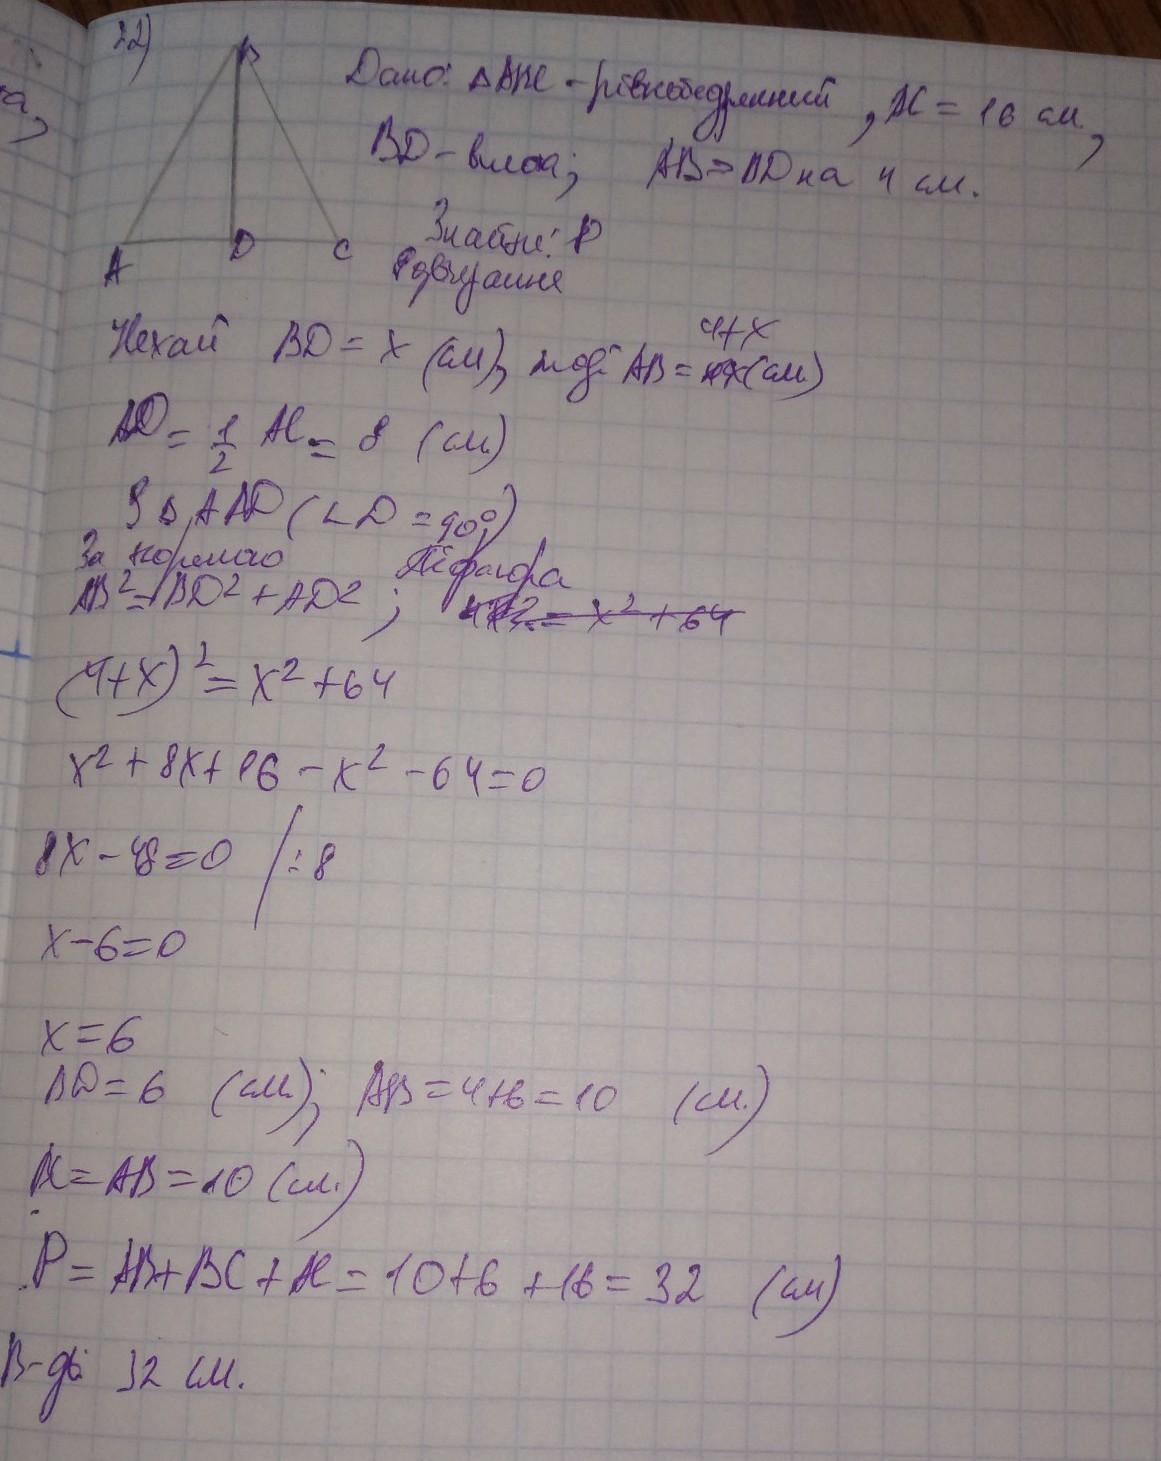 22)
B
Дано: △ABC - рівнобедренний, AC = 16 см,
BD - висота; AB > BD на 4 см.
A D C
Знайти: P
Розвязання
Нехай BD = x (см), тоді AB = 4+x (см)
AD = 1/2 AC = 8 (см)
З △ ABD (∠D = 90°)
За теоремою Піфагора
AB² = BD² + AD²; = x² + 64
(4+x)² = x² + 64
x² + 8x + 16 - x² - 64 = 0
8x - 48 = 0 / :8
x - 6 = 0
x = 6
BD = 6 (см); AB = 4+6 = 10 (см.)
BC = AB = 10 (см.)
P = AB + BC + AC = 10 + 6 + 16 = 32 (см)
В-дь: 32 см.